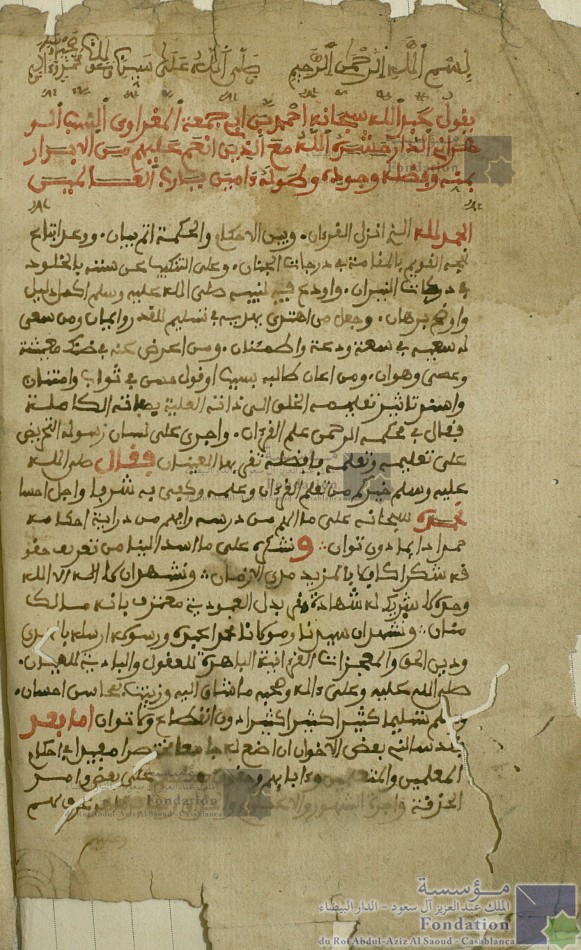 بسم الله الرحمن الرحيم صلى الله على سيدنا ومولانا محمد
يقول عبد الله سبحانه احمد بن ابي جمعة المغراوي النسب الو
هراني الدار حشره الله مع الذين انعم عليهم من الابرار
بمنه وفضله وجوده وطوله ءامين يارب العالمين
الحمد لله الذي انزل الفرءان وبين الاحكام والحكمة اتم بيان ووعد اتباع
نهجه القويم بالمقامة في درجات الجنان وعلى التنكيب عن سننه بالخلود
في دركات النيران واودع فيه لنبيه صلى الله عليه وسلم اكمل دليل
واوضح برهان وجعل من اهتدى بهديه في تسليم للقدر وايمان ومن سعى
له سعيه في سعة ودعة واطمئنان ومن اعرض عنه في ضنك معيشة
وعصى وهوان ومن اعان طالبه بسبب اوقول حسن في ثواب وامتنان
واهتم تاثير تعليمه الخلق الى ذاته العلية بصفاته الكاملة
فقال في محكمه الرحمن علم القرءان واجرى على لسان رسوله التحريض
على تعليمه وتعلمه بافضلية تقر بها العينان فقال صلى الله
عليه وسلم خيركم من تعلم القرءان وعلمه وكفى به شرفا واجل احسا
نحمده سبحانه على ما الهم من درسه وافهم من دراية احكامه
حمدا دايما دون توان ونشكره على ما اسدا الينا من تعريف حقو
قه شكرا كفيلا بالمزيد مدى الازمان ونشهد ان لا اله الا الله
وحده لا شريك له شهادة من بذل العبودية معترف بانه مالك
منان ونشهد ان سيدنا ومولانا محمدا عبده ورسوله ارسله بالهدى
ودين الحق والمعجزات القرءانية الباهرة للعقول والبادية للعيان
صلى الله عليه وعلى ءاله وصحبه ما اشتاق اليه وزينت محاسن احسان
وسلم تسليما كثيرا كثيرا كثيرا دون انقطاع ولا توان اما بعد
فقد سالني بعض الاخوان ان اضع له جامعا مختصرا مفيدا في احكام
المعلمين والمتعلمين وءادابهم على بعض وامر
الحرقة واجرة الشهور والاعياد
مؤسسة
الملك عبد العزيز آل سعود - الدار البيضاء
Fondation
du Roi Abdul-Aziz Al Saoud - Casablanca